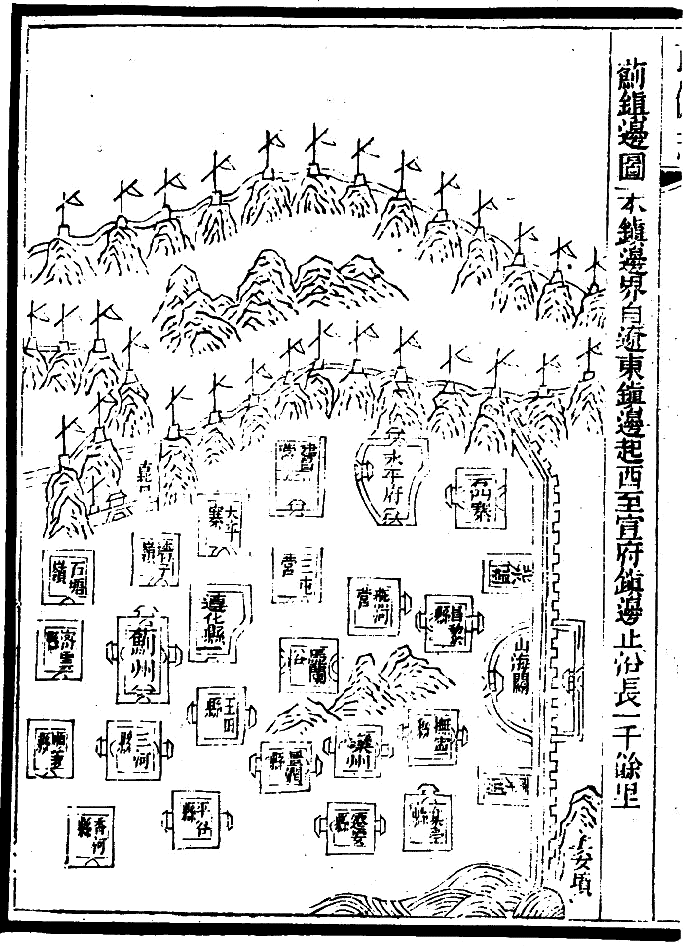 薊鎮邊圖
本鎮邊界自遼東鎮邊起西至宣府鎮邊止沿長一千餘里
建昌營
永平府
石門寨
太平寨
石塘嶺
三屯營
遵化縣
燕河營
昌黎縣
山海關
薊州
密雲縣
玉田縣
三河縣
豐潤縣
灤州
撫寧縣
順義縣
平谷縣
香河縣
遷安縣
樂亭縣
姜女墳